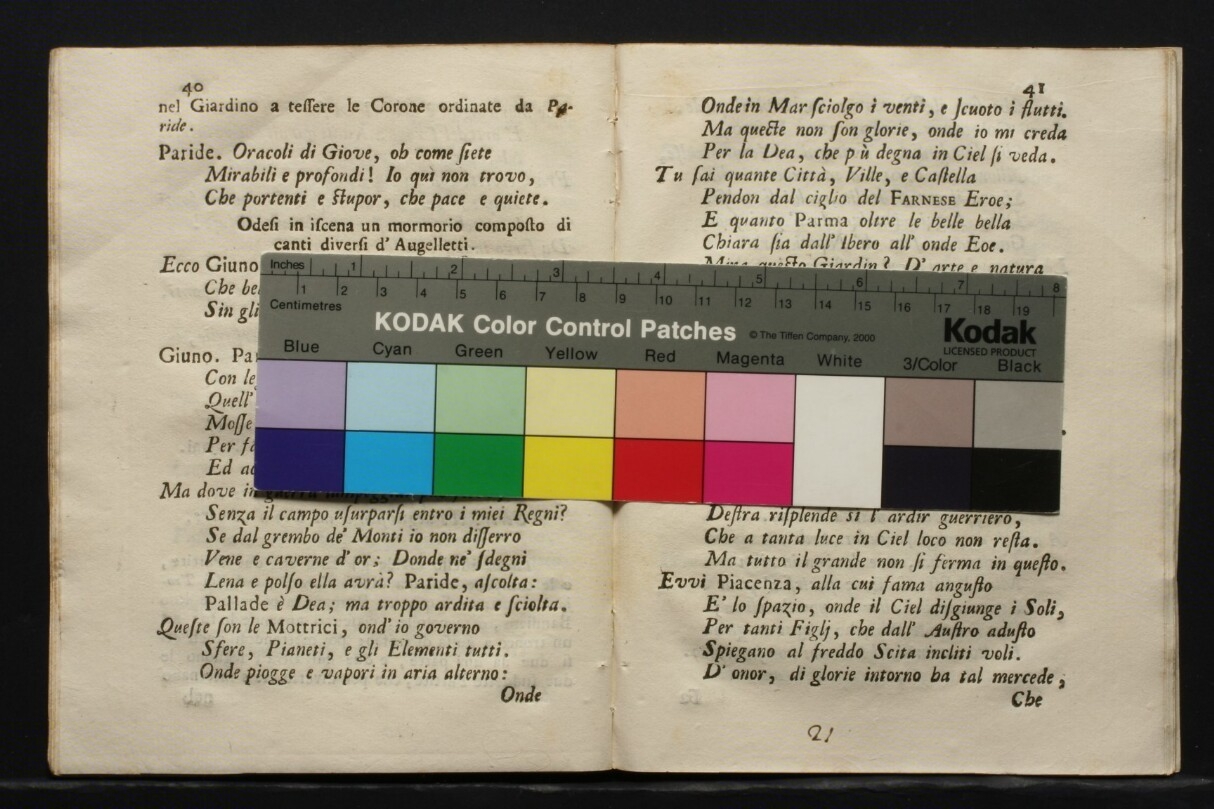 40
nel Giardino a teſſere le Corone ordinate da Pa-
ride.
Paride. Oracoli di Giove, oh come ſiete
Mirabili e profondi! Io qui non trovo,
Che portenti e ſtupor, che pace e quiete.
Odeſi in iſcena un mormorio compoſto di
canti diverſi d' Augelletti.
Ecco Giuno
Che
Sin gli
Giuno.
Con
Quell'
Moſſe
Per
Ed
Ma dove in
Senza il campo uſurparſi entro i miei Regni?
Se dal grembo de' Monti io non diſſerro
Vene e caverne d' or; Donde ne' ſdegni
Lena e polſo ella avrà? Paride, aſcolta:
Pallade è Dea; ma troppo ardita e ſciolta.
Queſte ſon le Mottrici, ond' io governo
Sfere, Pianeti, e gli Elementi tutti.
Onde piogge e vapori in aria alterno:
Onde
41
Onde in Mar ſciolgo i venti, e ſcuoto i flutti.
Ma queſte non ſon glorie, onde io mi creda
Per la Dea, che più degna in Ciel ſi veda.
Tu ſai quante Città, Ville, e Caſtella
Pendon dal ciglio del FARNESE Eroe;
E quanto Parma oltre le belle bella
Chiara ſia dall' Ibero all' onde Eoe.
Mira queſto Giardin? D' arte e natura
Deſtra riſplende sì l' ardir guerriero,
Che a tanta luce in Ciel loco non reſta.
Ma tutto il grande non ſi ferma in queſto.
Evvi Piacenza, alla cui fama anguſto
E' lo ſpazio, onde il Ciel diſgiunge i Soli,
Per tanti Figlj, che dall' Auſtro aduſto
Spiegano al freddo Scita incliti voli.
D' onor, di glorie intorno ha tal mercede,
Che
21
Inches 1 2 3 4 5 6 7 8
1 2 3 4 5 6 7 8 9 10 11 12 13 14 15 16 17 18 19
Centimetres
KODAK Color Control Patches © The Tiffen Company, 2000
Kodak
LICENSED PRODUCT
Blue Cyan Green Yellow Red Magenta White 3/Color Black